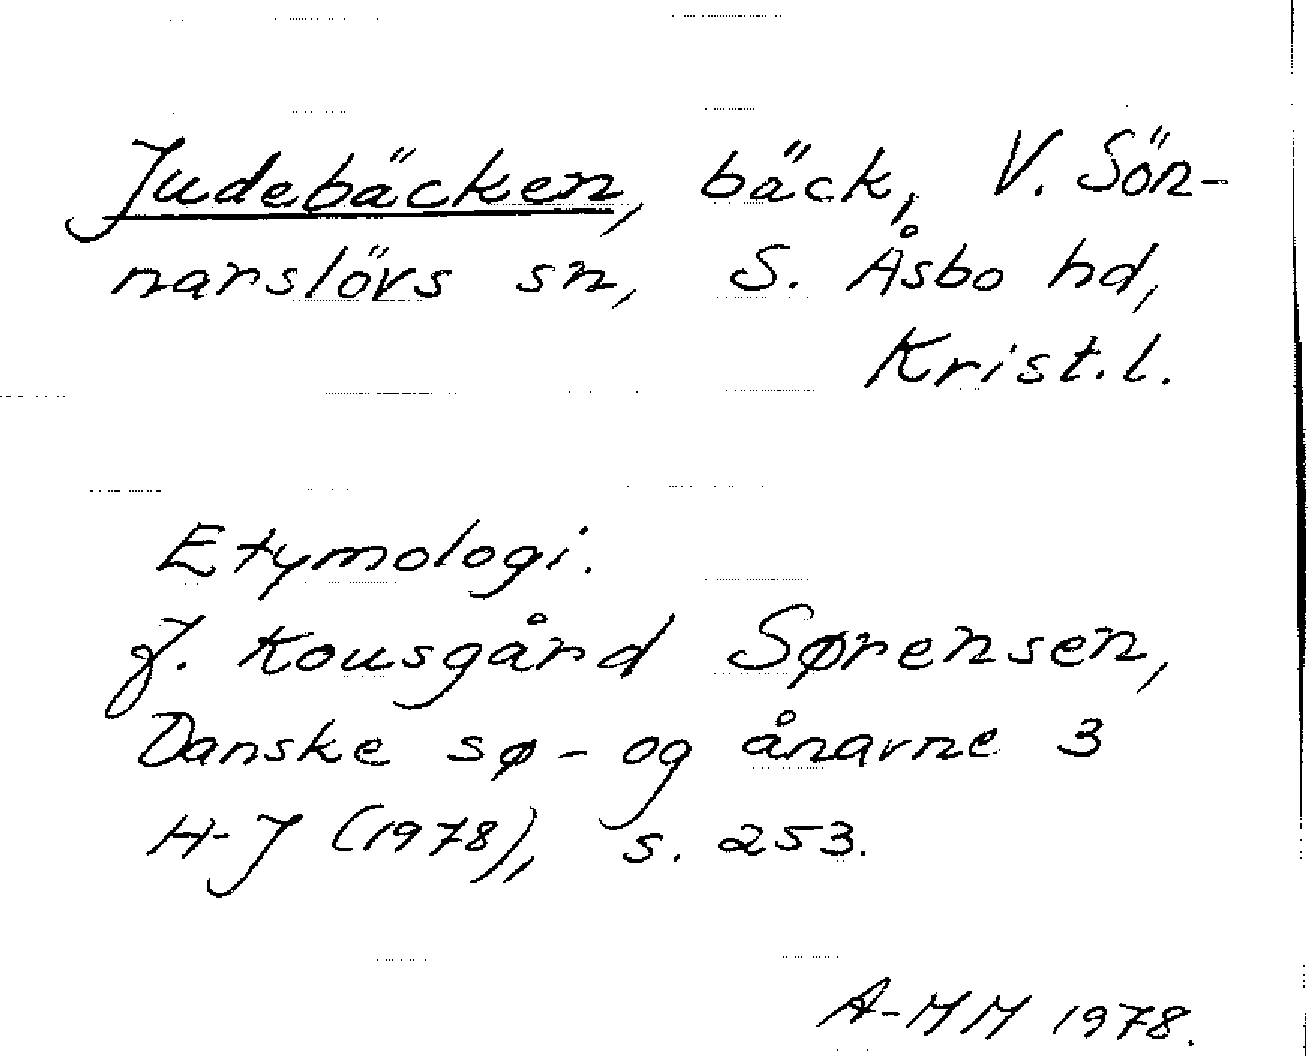 Judebäcken, bäck, V. Sön-
narslövs sn, S. Åsbo hd,
Krist.l.
Etymologi.
J. Kousgård Sørensen,
Danske sø- og ånavne 3
H-J (1978), s. 253.
A-MM 1978.